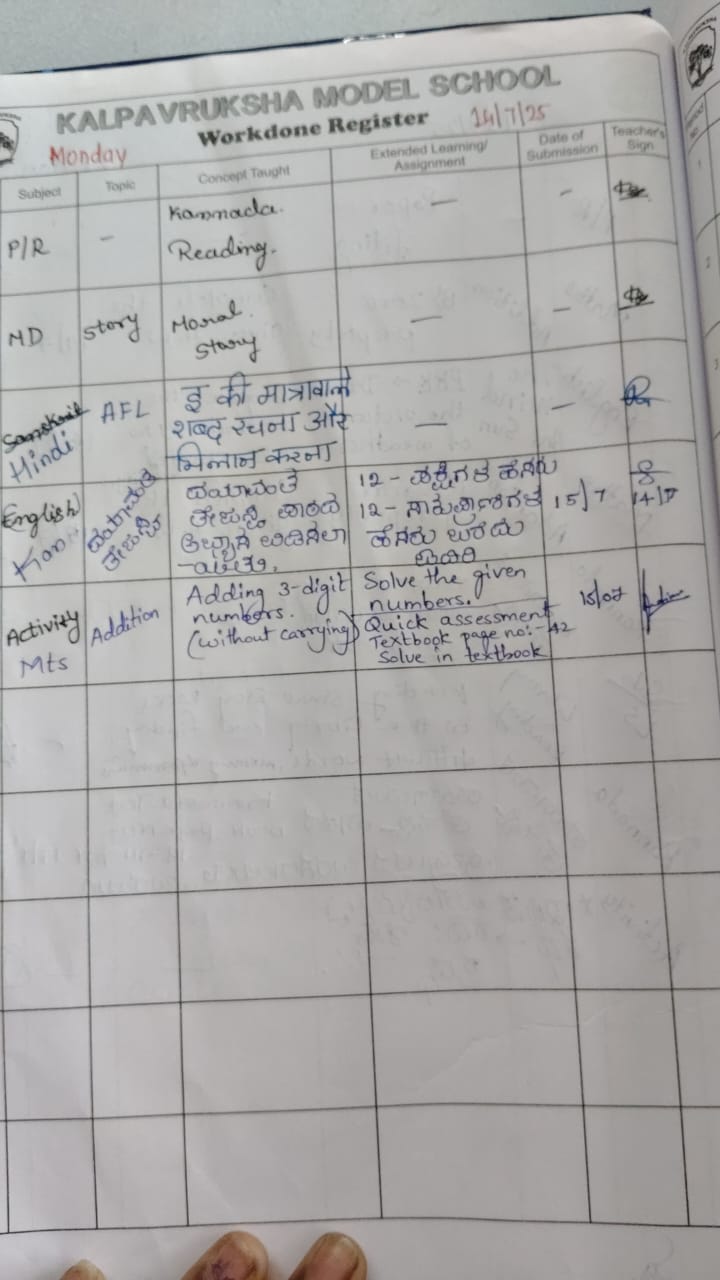 KALPAVRUKSHA MODEL SCHOOL
Workdone Register
Monday 14/7/25
Subject Topic Concept Taught Extended Learning/ Assignment Date of Submission Teacher's Sign
P/R - Kannada. Reading. - -
MD Story Moral Story - -
Sanskrit Hindi AFL इ की मात्रावाले
शब्द रचना और - -
मिलान करना
English Kan ದಯಾವಂತೆ
12 - ಪಕ್ಷಿಗಳ ಹೆಸರು
12 - ಸಾಕುಪ್ರಾಣಿಗಳ 15/7 14/7
ಹೆಸರು ಬರೆದು
Activity Mts Addition
Adding 3-digit
numbers.
(without carrying)
Solve the given
numbers.
Quick assessment
Textbook page no:- 42
Solve in textbook
15/07